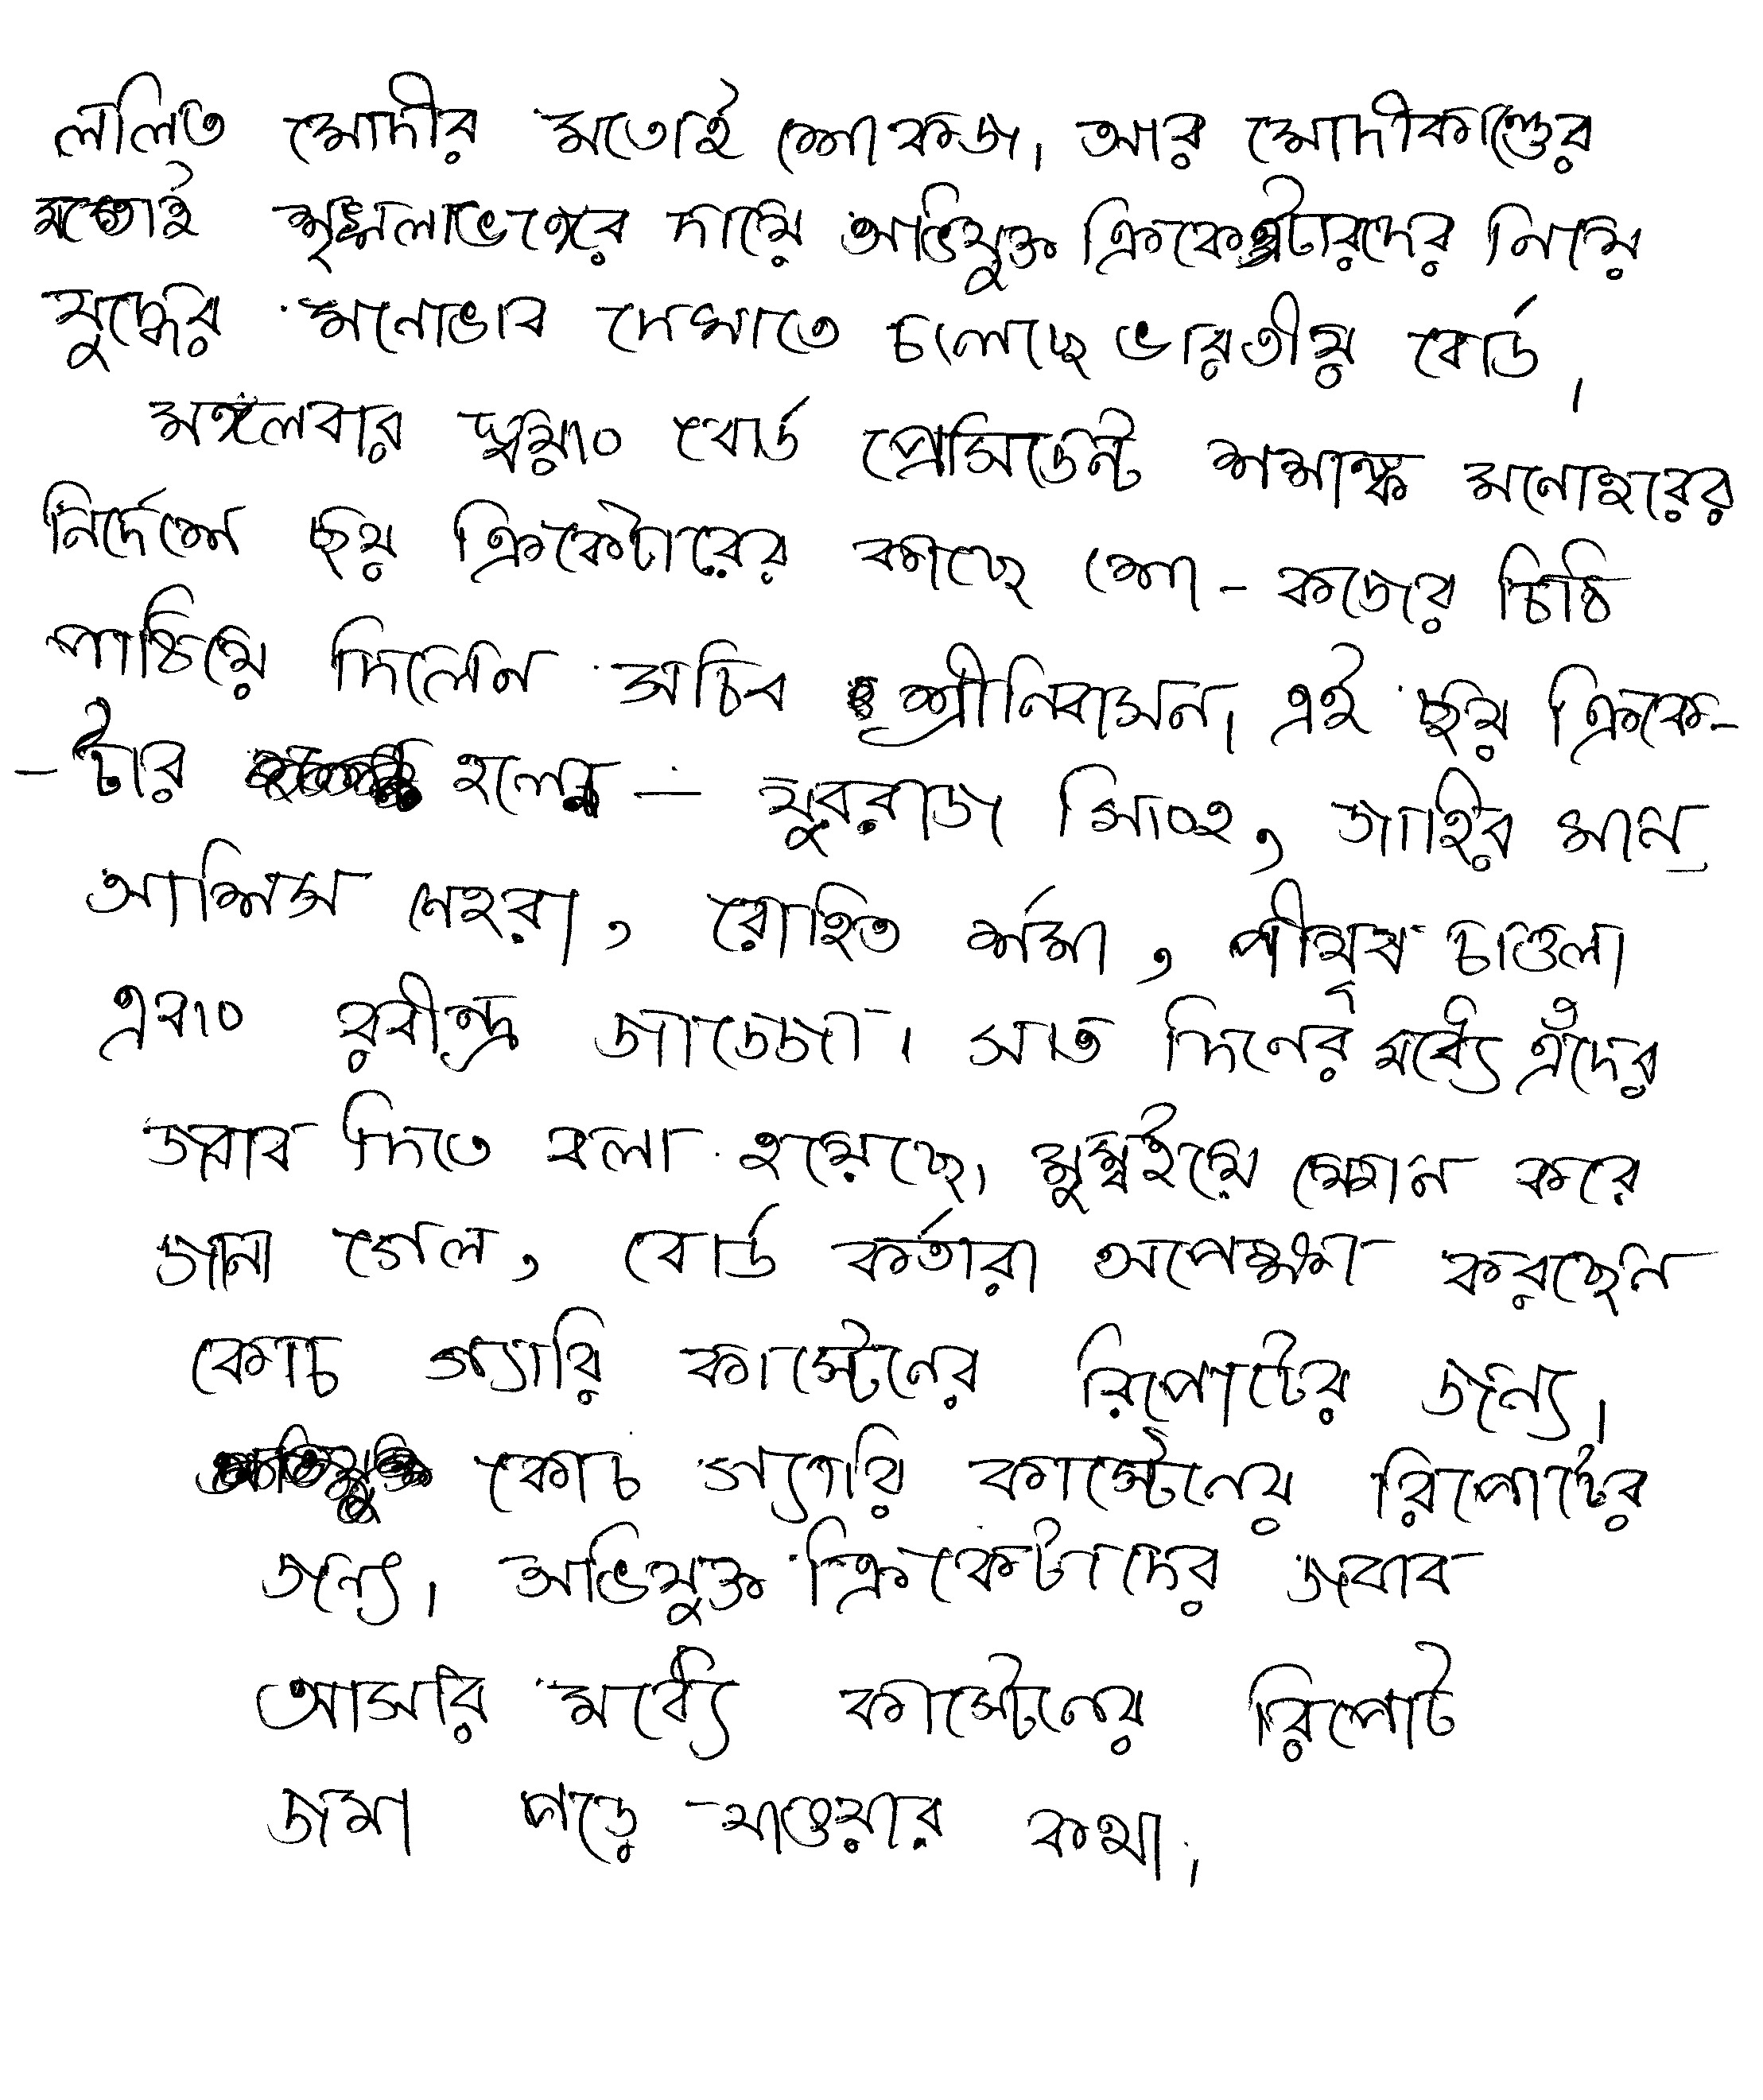 ললিত মোদীর মতোই শোকজ। আর মোদীকাণ্ডের
মতোই শৃঙ্খলাভঙ্গের দায়ে অভিযুক্ত ক্রিকেটারদের নিয়ে
যুদ্ধের মনোভাব দেখাতে চলেছে ভারতীয় বোর্ড।
মঙ্গলবার স্বয়ং বোর্ড প্রেসিডেন্ট শশাঙ্ক মনোহরের
নির্দেশে ছয় ক্রিকেটারের কাছে শো-কজের চিঠি
পাঠিয়ে দিলেন সচিব শ্রীনিবাসন। এই ছয় ক্রিকে-
-টার হলেন — যুবরাজ সিংহ, জাহির খান,
আশিস নেহরা, রোহিত শর্মা, পীযূষ চাওলা
এবং রবীন্দ্র জাডেজা। সাত দিনের মধ্যে এঁদের
জবাব দিতে বলা হয়েছে। মুম্বইয়ে ফোন করে
জানা গেল, বোর্ড কর্তারা অপেক্ষা করছেন
কোচ গ্যারি কার্স্টেনের রিপোর্টের জন্য।
কোচ গ্যারি কার্স্টেনের রিপোর্টের
জন্য। অভিযুক্ত ক্রিকেটাদের জবাব
আসার মধ্যে কার্স্টেনের রিপোর্ট
জমা পড়ে যাওয়ার কথা।